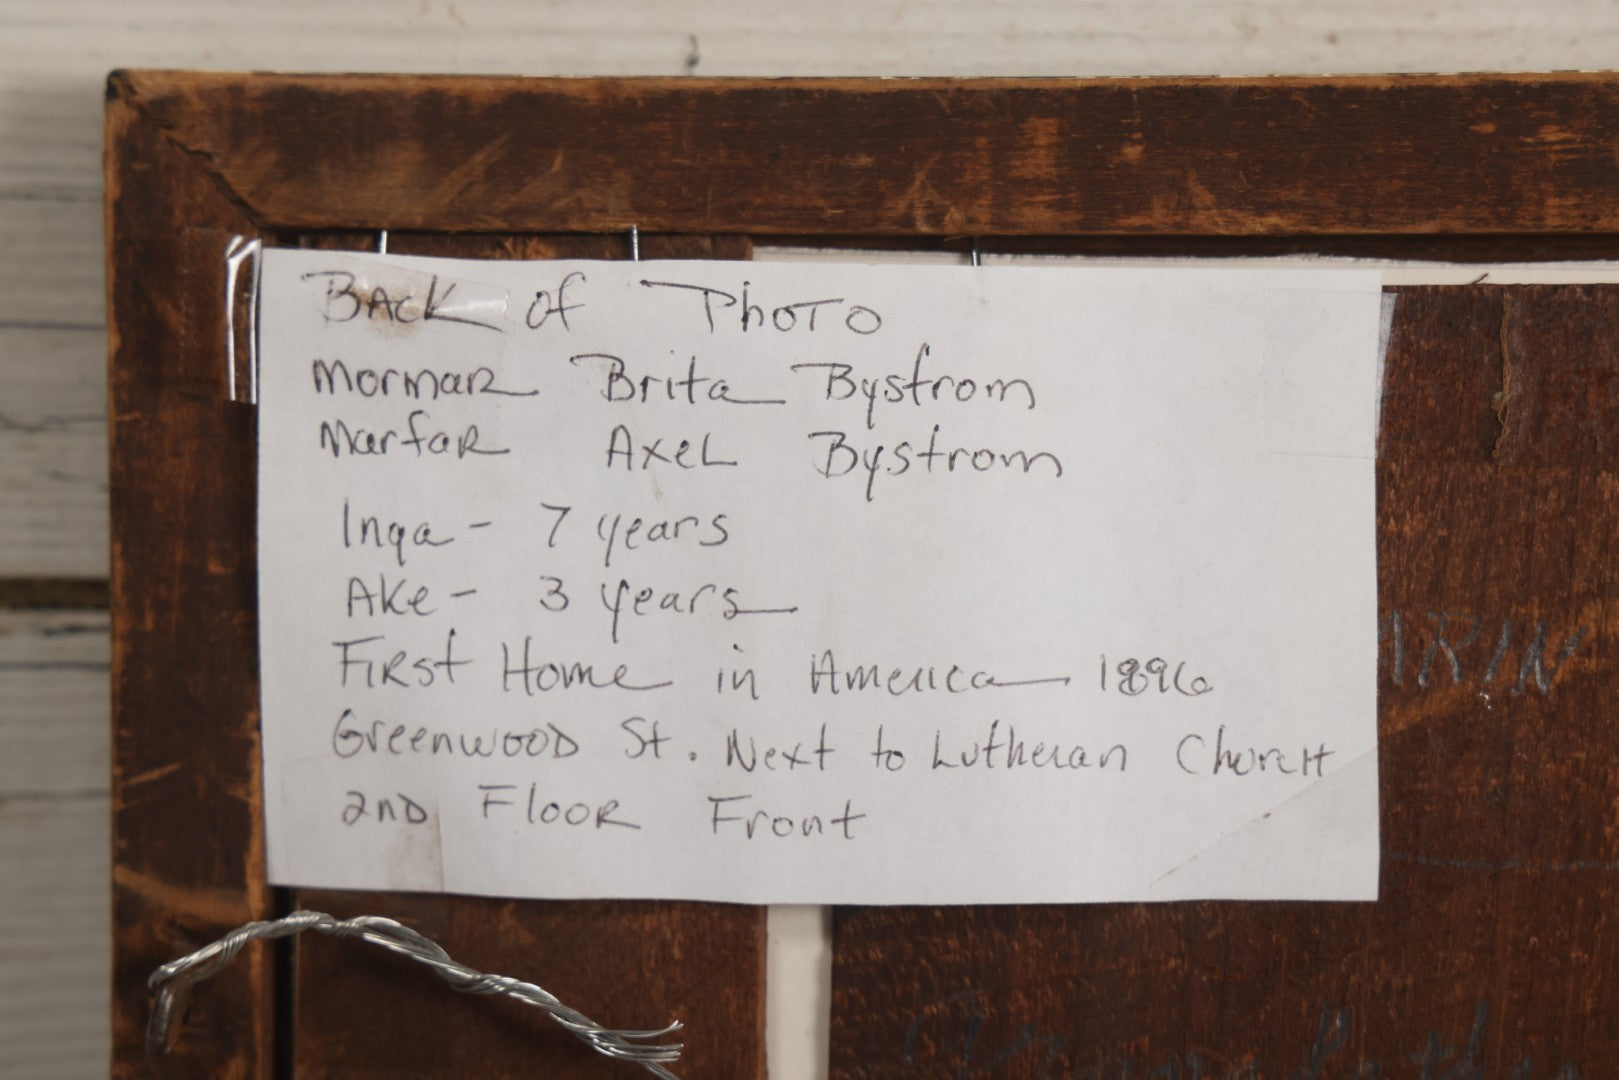 Back of Photo
Mormar Brita Bystrom
Marfar Axel Bystrom
Inga - 7 years
Ake - 3 years
First Home in America 1896
Greenwood St. Next to Lutheran Church
2nd Floor Front
ARIN